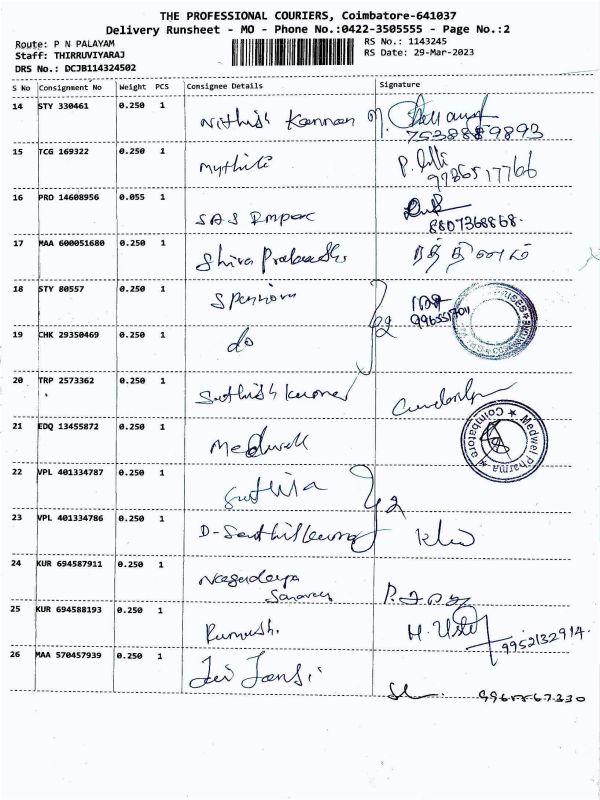 THE PROFESSIONAL COURIERS, Coimbatore-641037
Delivery Runsheet - MO - Phone No.:0422-3505555 - Page No.:2
Route: P N PALAYAM
RS No.: 1143245
Staff: THIRRUVIYARAJ
RS Date: 29-Mar-2023
DRS No.: DCJB114324502
S No Consignment No Weight PCS Consignee Details Signature
14 STY 330461 0.250 1 Nithish Kannan
7538889893
15 TCG 169322 0.250 1 Mythili
9786517766
16 PRO 14608956 0.055 1 SAS Impex
8807368868.
17 MAA 600051680 0.250 1 Shiva Prakaash ரத்தினம்
18 STY 80557 0.250 1
9965517011
19 CHK 29350469 0.250 1 do
20 TRP 2573362 0.250 1 Sathish kumar
21 EDQ 13455872 0.250 1 Medwell
Medwel Pharma ★ Coimbatore ★
22 VPL 401334787 0.250 1 Suthira
23 VPL 401334786 0.250 1 D-Senthilkumar
24 KUR 694587911 0.250 1 Nagadeepa
25 KUR 694588193 0.250 1
9952132914.
26 MAA 570457939 0.250 1 Jansi